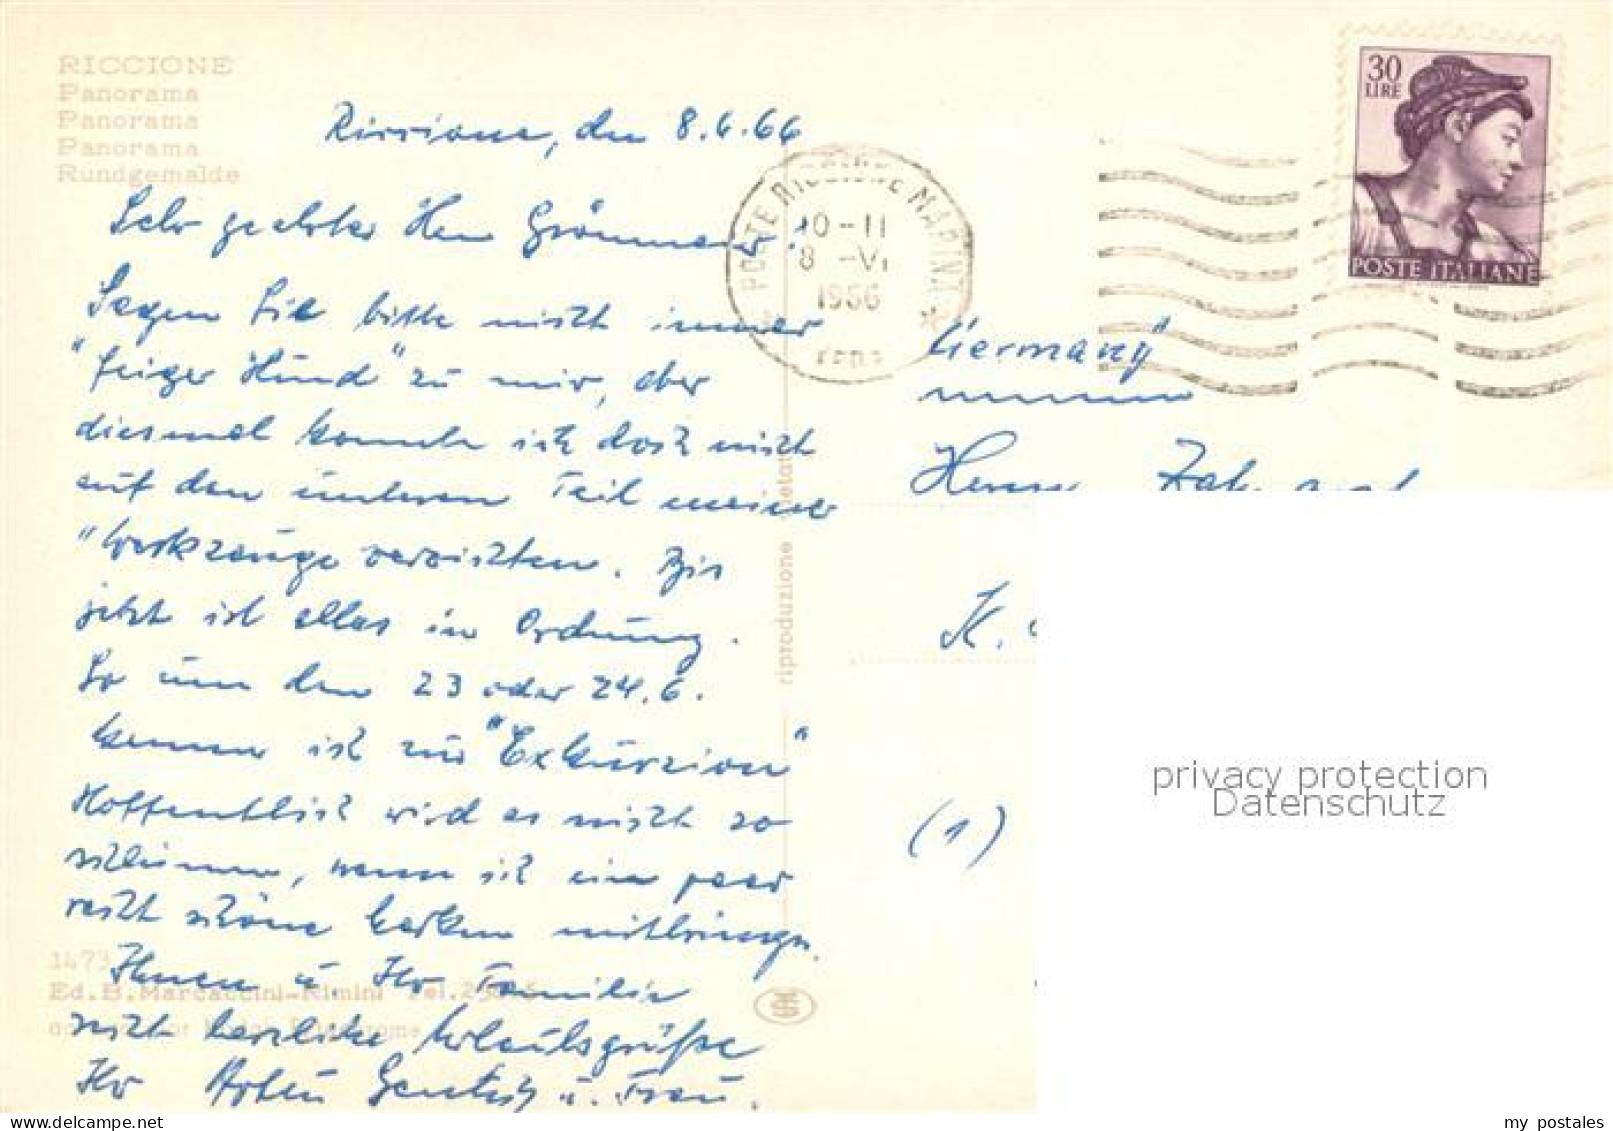 RICCIONE
Panorama
Panorama
Panorama
Rundgemalde
Riccione, den 8.6.66
Sehr geehrter Herr
Sagen Sie bitte nicht immer
"feiger Hund" zu mir, aber
diesmal konnte ich doch nicht
auf den unteren Teil meiner
"Werkzeuge verzichten. Bis
jetzt ist alles in Ordnung.
So um den 23 oder 24.6.
komme ich zur "Exkursion"
Hoffentlich wird es nicht so
schlimm, wenn ich ein paar
recht schöne Karten mitbringe.
Ihnen u. Ihr Familie
recht herzliche Urlaubsgrüße
Ihr u. Frau.
1473
Ed. B. Marcaccini-Rimini Tel.
riproduzione vietata
POSTE RICCIONE MARINA
10-11
8 -VI
1966
30
LIRE
POSTE ITALIANE
"Germany"
Herrn
K.
(1)
privacy protection
Datenschutz
my postales